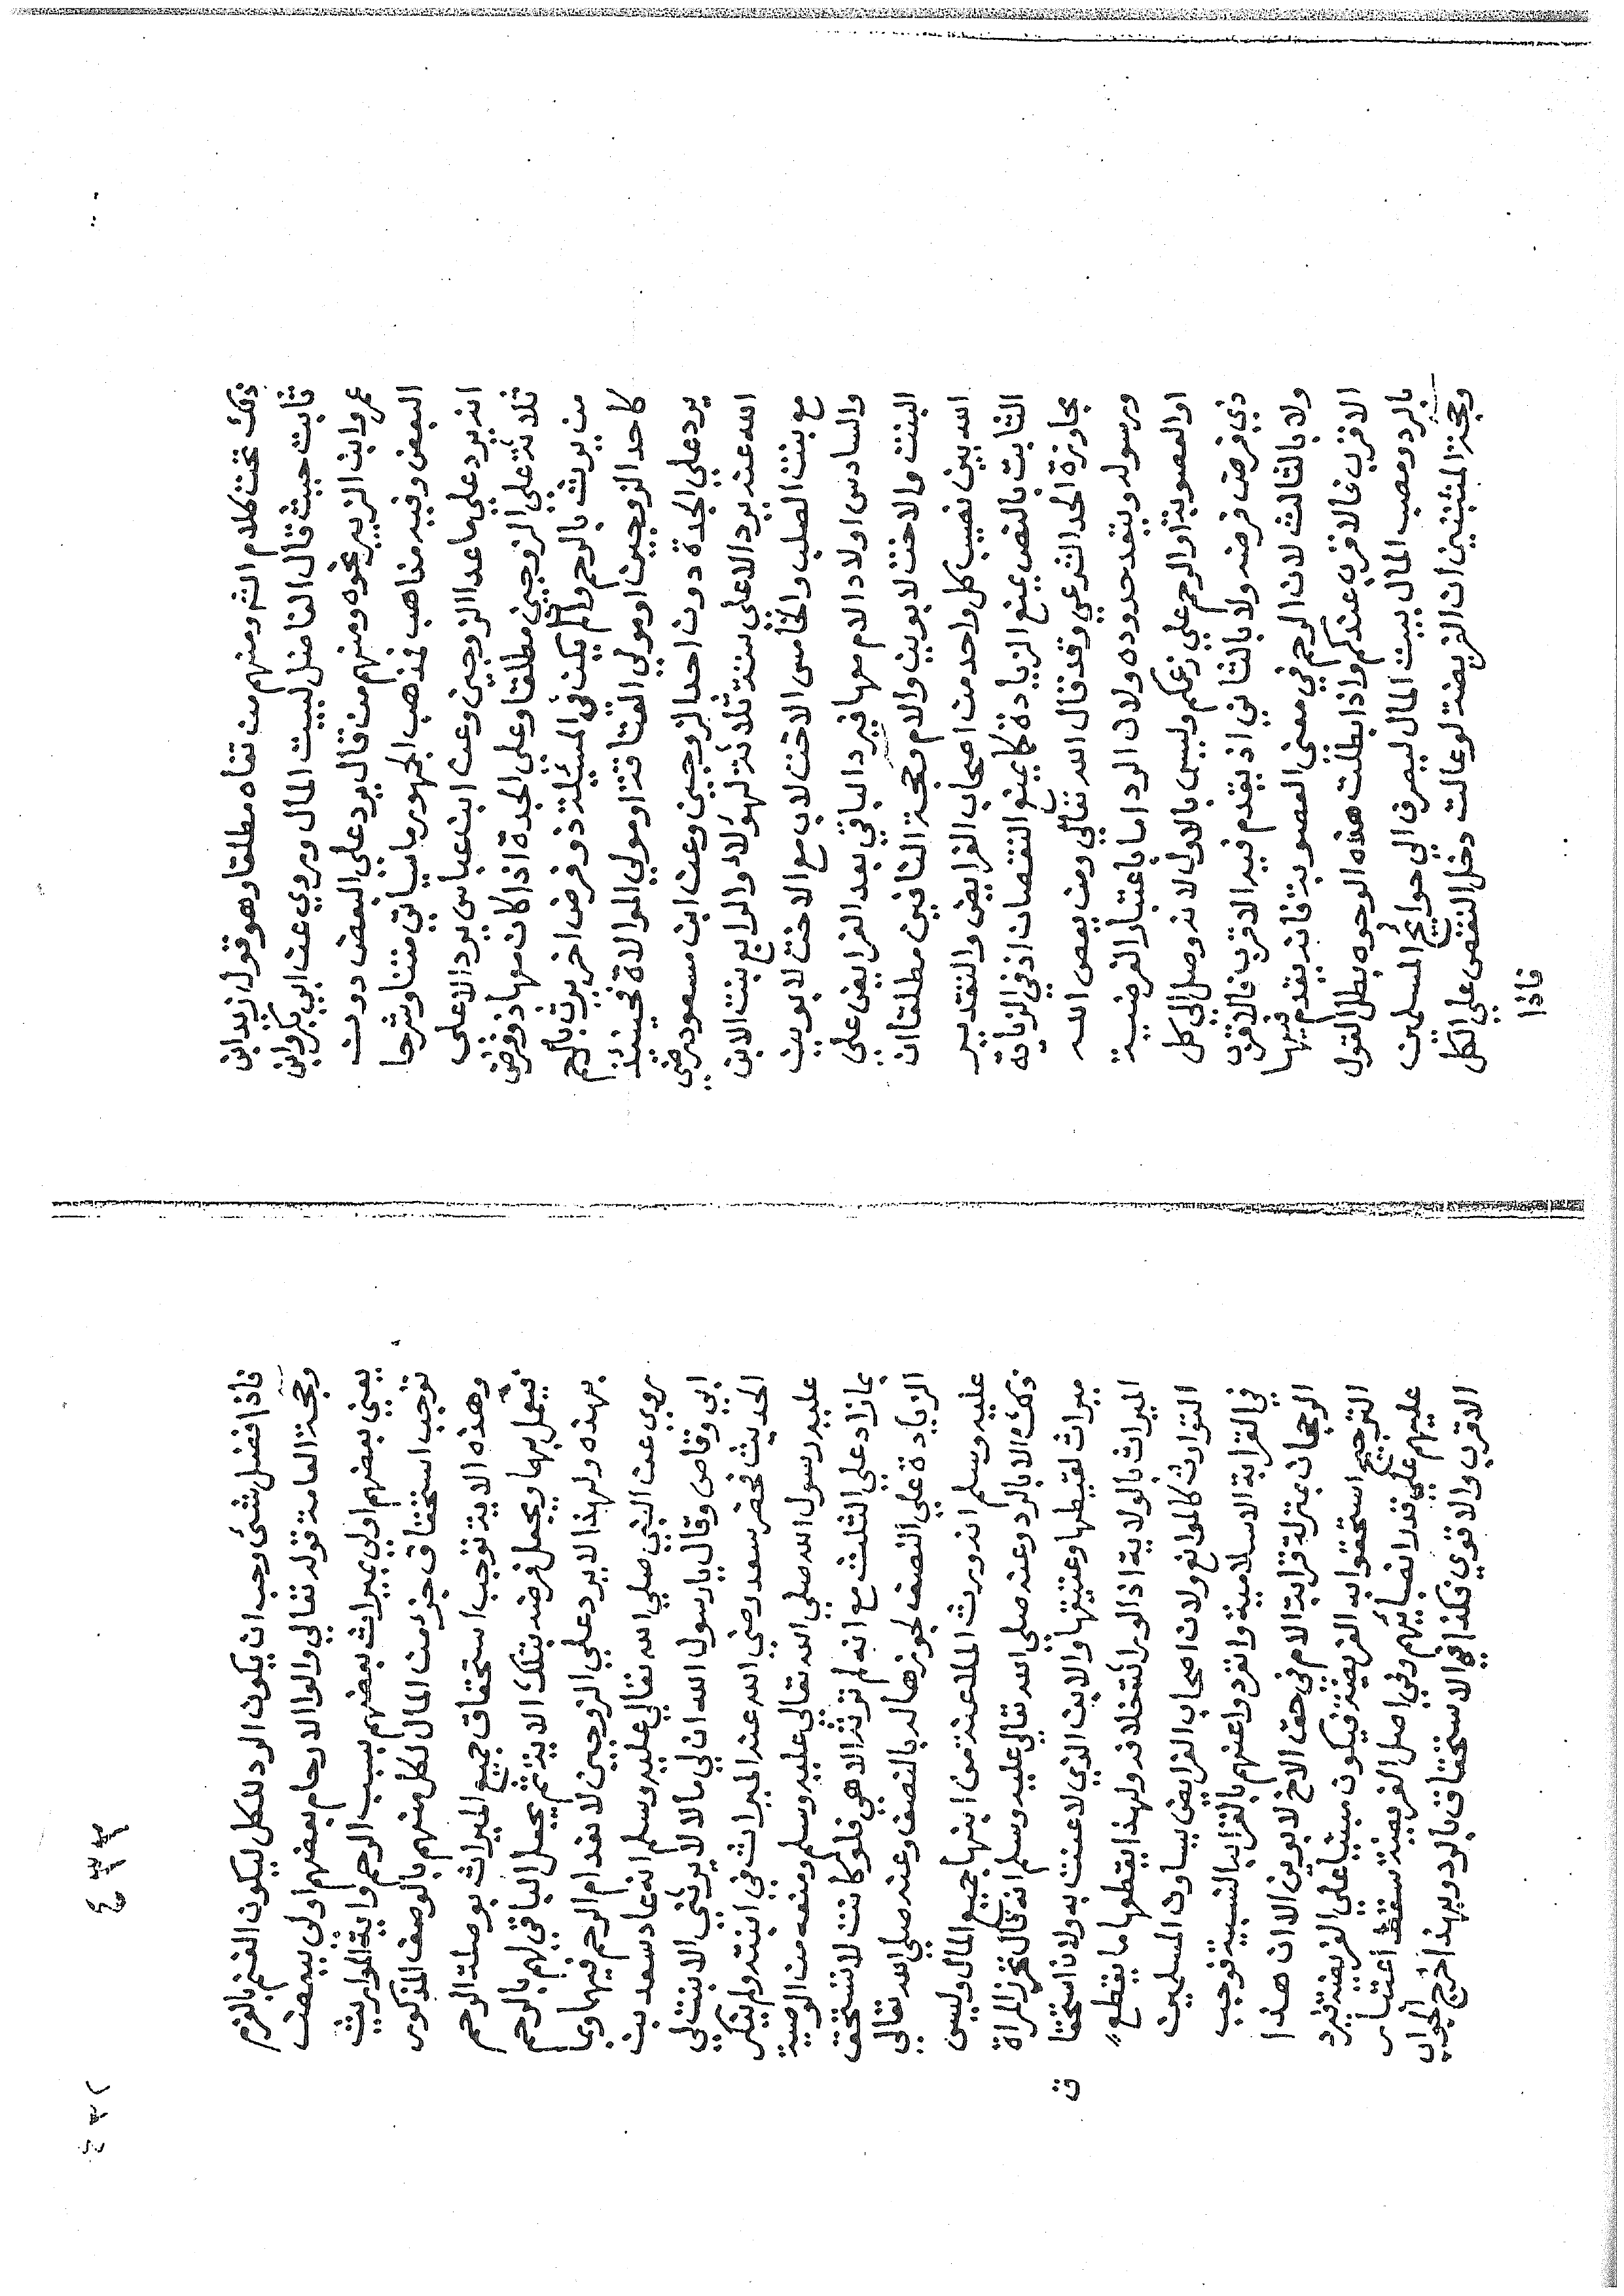 ذلك تحت كلام الثم ومنهم من نفاه مطلقا وهو قول زيد ابن
ثابت حيث قال الفاضل لبيت المال وروي عن ابي بكر وابن
عمر وابن الزبير نحوه ومنهم من قال يرد علي البعض دون
البعض وفيه مذاهب فمذهب الجمهور ما سياتي متنا وشرحا
انه يرد علي ما عدا الزوجين وعن ابن عباس يرد الا على
ثلاثة علي الزوجين مطلقا وعلى الجدة اذا كان معها ذو فرض
من يرث بالرحم وان لم يكن في المسئلة ذو فرض اخر يرث بالرحم
كاحد الزوجين او مولي العتاقة او مولي الموالاة فحينئذ
يرد علي الجدة دون احد الزوجين وعن ابن مسعود رضي
الله عنه يرد الا على ستة ثلاثة لهؤلاء والرابع بنت الابن
مع بنت الصلب والخامس الاخت لاب مع الاخت لابوين
والسادس اولاد الام معها فيرد الباقي بعد الفرايض على
البنت والاخت لابوين والام وحجة النافين مطلقا ان
الله بين نصيب كل واحد من اصحاب الفرايض والتقدير
الثابت بالنص يمنع الزيادة كما يمنع النقصان اذ في الزيادة
مجاوزة الحد الشرعي وقد قال الله تعالي ومن يعص الله
ورسوله ويتعد حدوده ولان الرد اما باعتبار الفرضية
او العصوبة او الرحم علي زعمكم وليس بالاول لانه وصل الي كل
ذي فرض فرضه ولا بالثاني اذ يقدم فيه الاقرب فالاقرب
ولا بالثالث لان الرحم في معني العصوبة فانه يقدم فيها
الاقرب فالاقرب عندكم واذا بطلت هذه الوجوه بطل القول
بالرد ومصب المال بيت المال ليصرف الي حوايج المسلمين
وحجة المثبتين ان الفريضة لو عالت دخل النقص علي الكل
فاذا
فاذا فضل شئ وجب ان يكون الرد للكل ليكون الغنم بالغرم
وحجة العامة قوله تعالي والوا الارحام بعضهم اولى ببعض
يعني بعضهم اولي بميراث بعضهم بسبب الرحم واية المواريث
توجب استحقاق جزء من المال لكل منهم بالوصف المذكور
وهذه الاية توجب استحقاق جميع الميراث بوصلة الرحم
فيعمل بهما ويجعل فرضه بتلك الاية ثم يجعل الباقي لهم بالرحم
بهذه ولهذا لا يرد علي الزوجين لانعدام الرحم فيهما وبما
روي عن النبي صلي الله تعالي عليه وسلم انه عاد سعد بن
ابي وقاص وقال يا رسول الله ان لي مالا لا يرثني الا بنت لي
الحديث فحضر سعد رضي الله عنه الميراث في ابنته ولم ينكر
عليه رسول الله صلي الله تعالي عليه وسلم ومنعه من الوصية
بما زاد علي الثلث مع انه لم ترثه الا هي فلو كانت لا تستحق
الزيادة علي النصف لجوزها له بالنصف وعنه صلي الله تعالي
عليه وسلم انه ورث الملاعنة من ابنها جميع المال وليس
ذلك الا بالرد وعنه صلي الله تعالي عليه وسلم انه قال تحرز المراة
ميراث لقيطها وعتيقها والابن الذي لاعنت به ولان استحقا
ق
الميراث بالولاية اذ الوراثة خلافة ولهذا يقطعها ما يقطع
التوارث كالموانع ولان اصحاب الفرايض يساوون المسلمين
في القرابة الاسلامية وانفردوا عنهم بالقرابة النسبية فوجب
الرجحان بمنزلة قرابة الام في حق الاخ لابوين الا ان هذا
الترجيح استحقوا به الفريضة فيكون مبنيا علي الفريضة فيرد
عليهم علي قدر انصبائهم وفي اصل الفريضة سقط اعتبار
الاقرب والاقوي فكذا في الاستحقاق بالرد وبهذا خرج الجواب